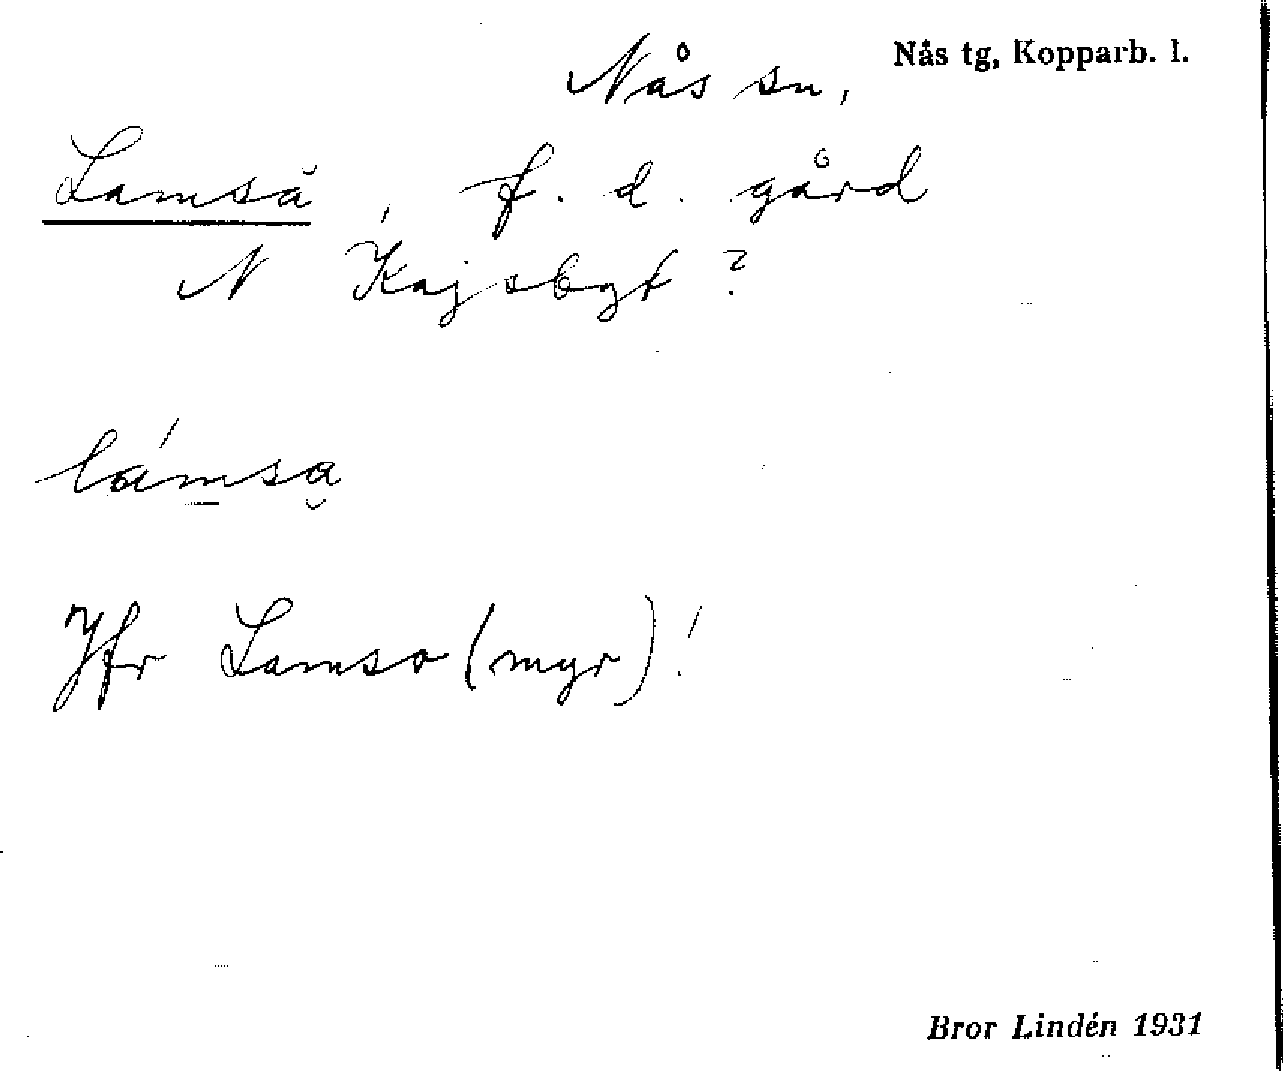 Nås tg, Kopparb. l.
Nås sn,
Lamsă, f. d. gård
N Kajsbyt?
lámsa̮
Jfr Lamso (myr)!
Bror Lindén 1931